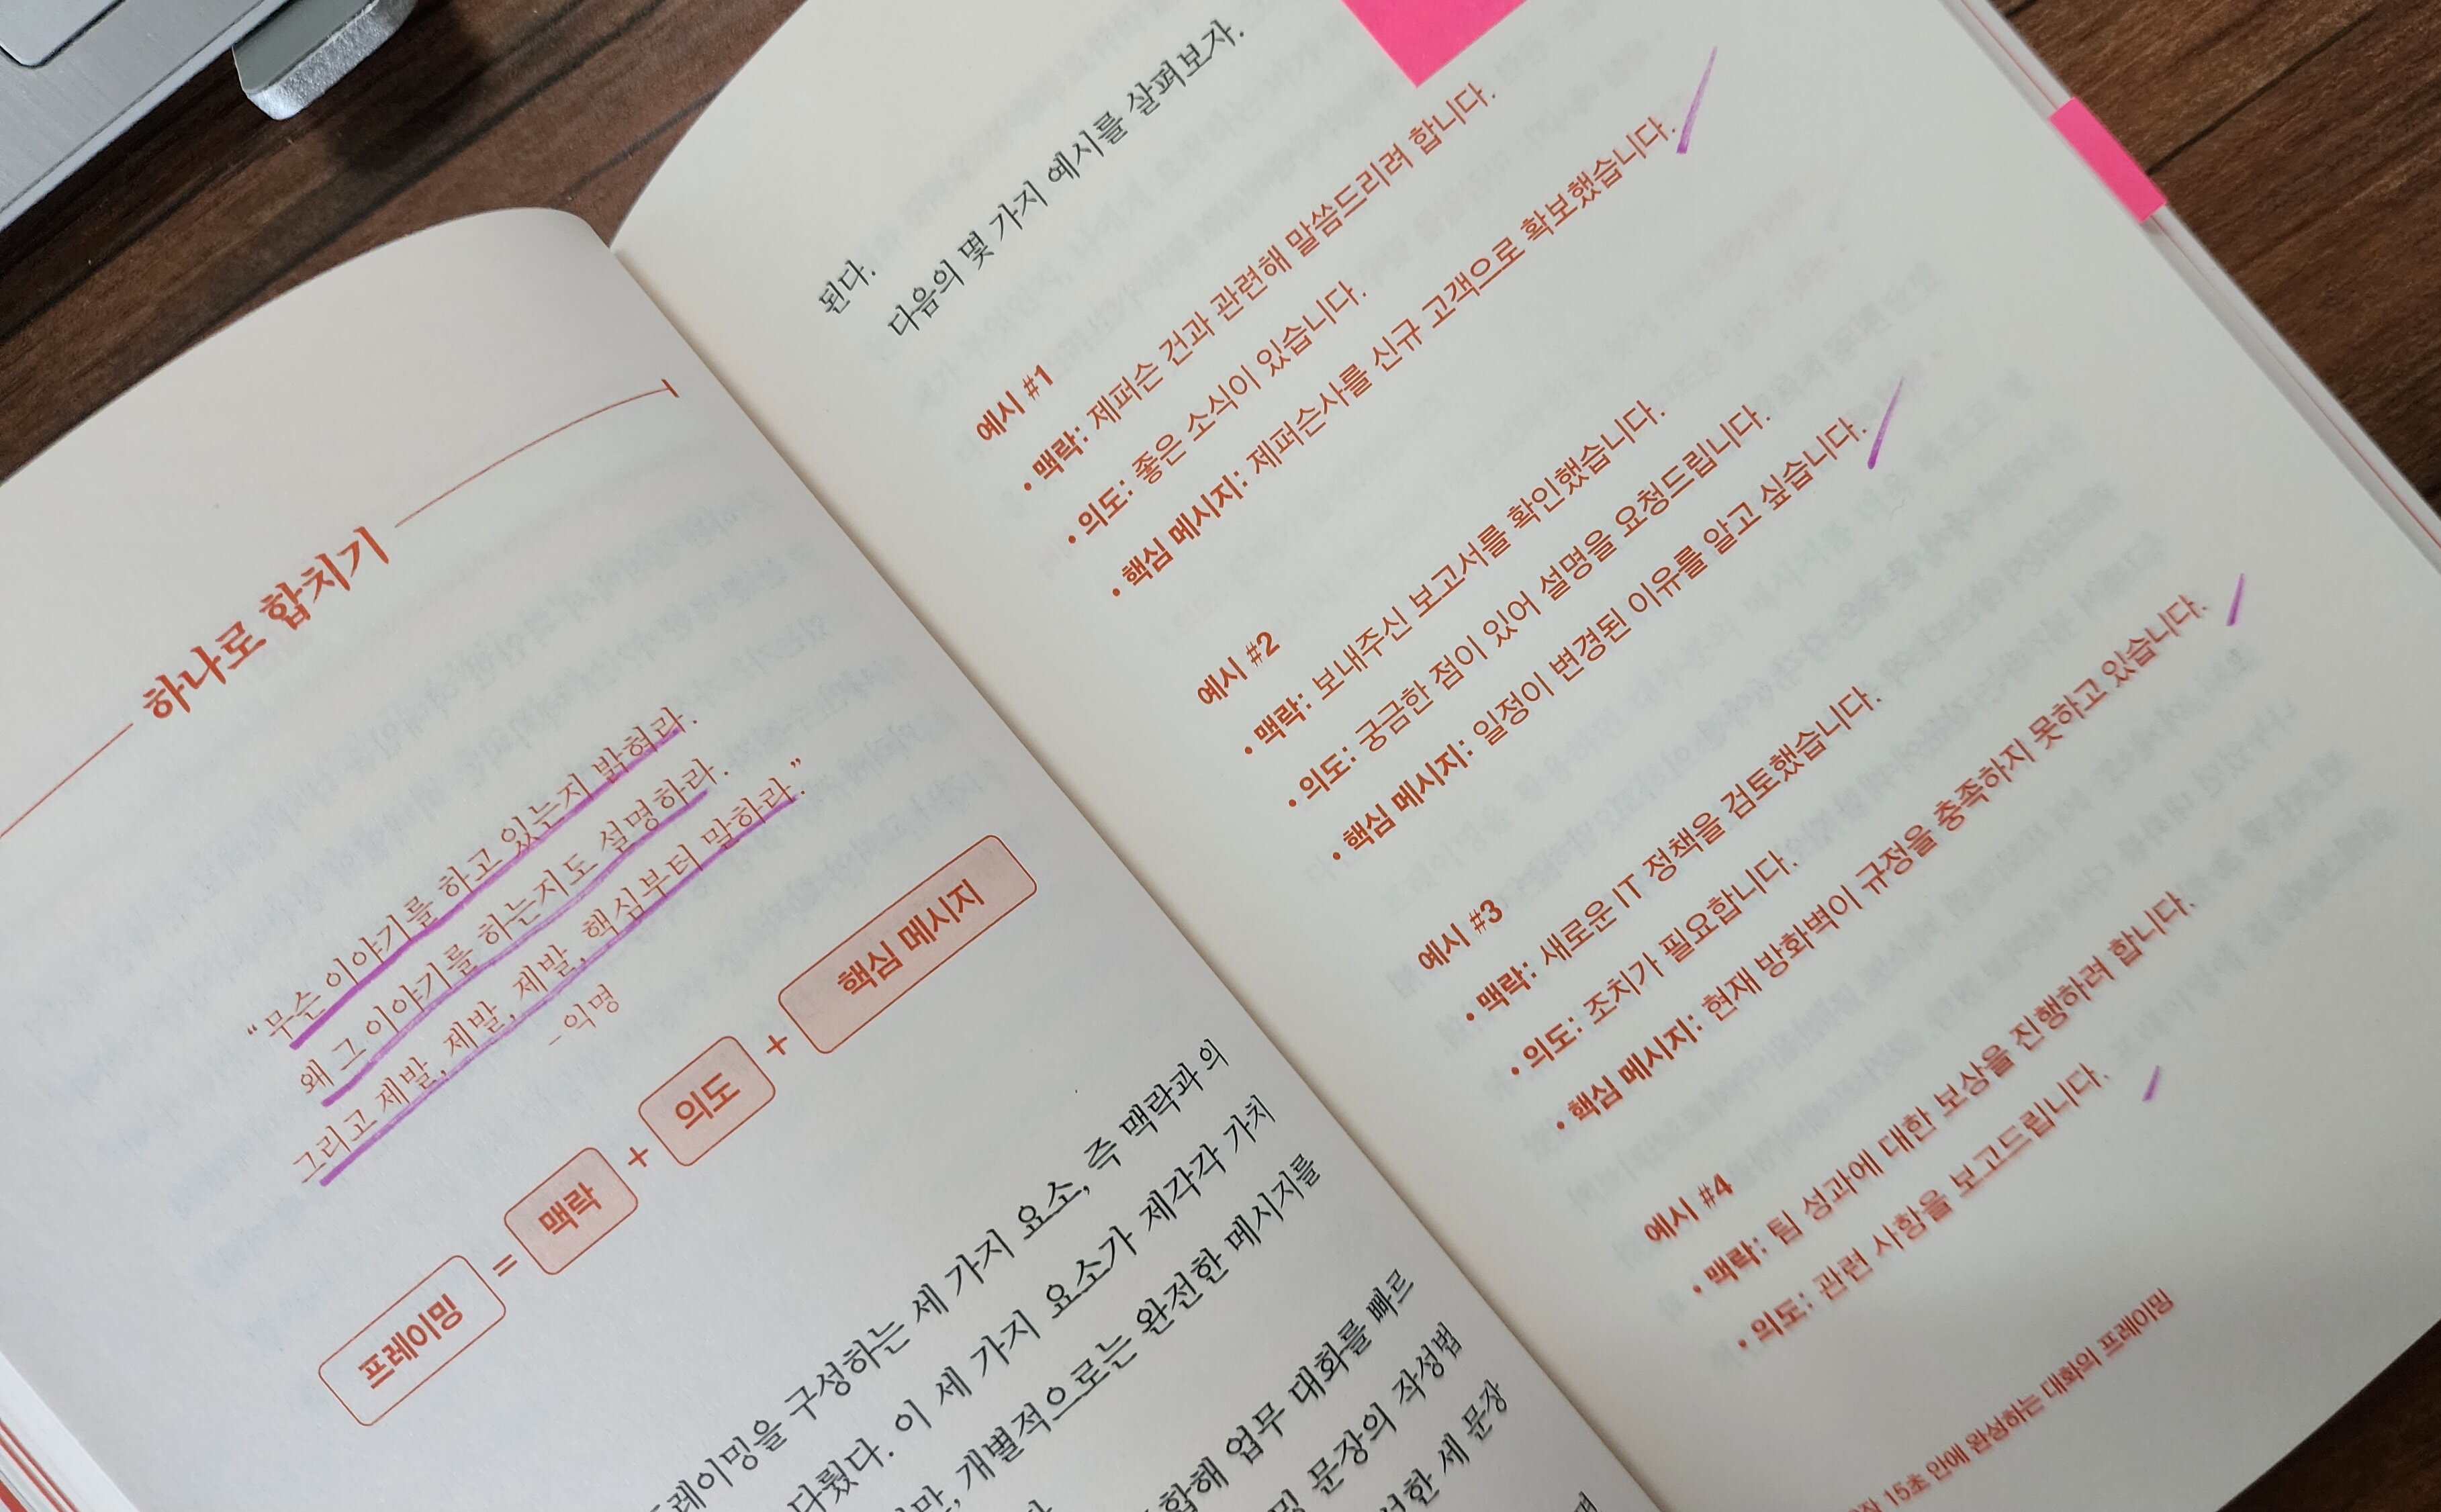 하나로 합치기
“무슨 이야기를 하고 있는지 밝혀라.
왜 그 이야기를 하는지도 설명하라.
그리고 제발, 제발, 제발, 핵심부터 말하라.”
– 익명
프레이밍 = 맥락 + 의도 + 핵심 메시지
프레이밍을 구성하는 세 가지 요소, 즉 맥락과 의
다뤘다. 이 세 가지 요소가 제각각 가치
개별적으로는 완전한 메시지를
업무 대화를 빠르
문장의 작성법
세 문장
된다.
다음의 몇 가지 예시를 살펴보자.
예시 #1
• 맥락: 제퍼슨 건과 관련해 말씀드리려 합니다.
• 의도: 좋은 소식이 있습니다.
• 핵심 메시지: 제퍼슨사를 신규 고객으로 확보했습니다.
예시 #2
• 맥락: 보내주신 보고서를 확인했습니다.
• 의도: 궁금한 점이 있어 설명을 요청드립니다.
• 핵심 메시지: 일정이 변경된 이유를 알고 싶습니다.
예시 #3
• 맥락: 새로운 IT 정책을 검토했습니다.
• 의도: 조치가 필요합니다.
• 핵심 메시지: 현재 방화벽이 규정을 충족하지 못하고 있습니다.
예시 #4
• 맥락: 팀 성과에 대한 보상을 진행하려 합니다.
• 의도: 관련 사항을 보고드립니다.
15초 안에 완성하는 대화의 프레이밍